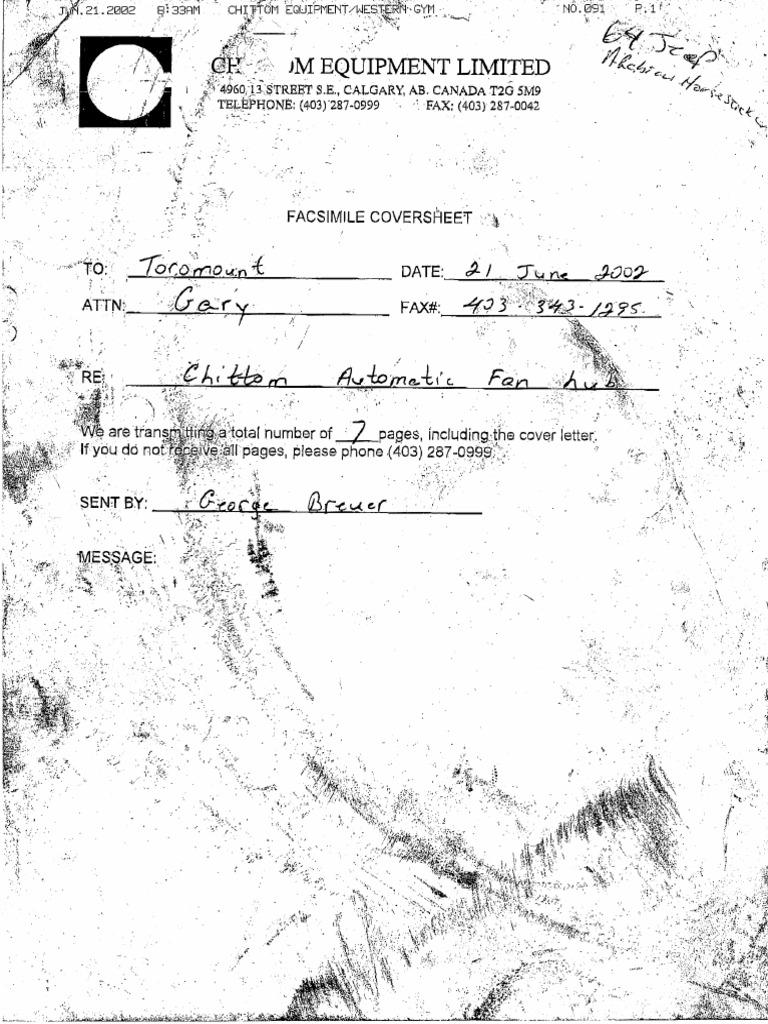 JUN.21.2002 8:33AM CHITTOM EQUIPMENT/WESTERN GYM NO.091 P.1
64 Jeep
CH OM EQUIPMENT LIMITED
4960 13 STREET S.E., CALGARY, AB. CANADA T2G 5M9
TELEPHONE: (403) 287-0999 FAX: (403) 287-0042
FACSIMILE COVERSHEET
TO: Toromount DATE: 21 June 2002
ATTN: Gary FAX#: 403-343-1295
RE: Chittom Automatic Fan hub
We are transmitting a total number of 7 pages, including the cover letter.
If you do not receive all pages, please phone (403) 287-0999.
SENT BY: George Breuer
MESSAGE: